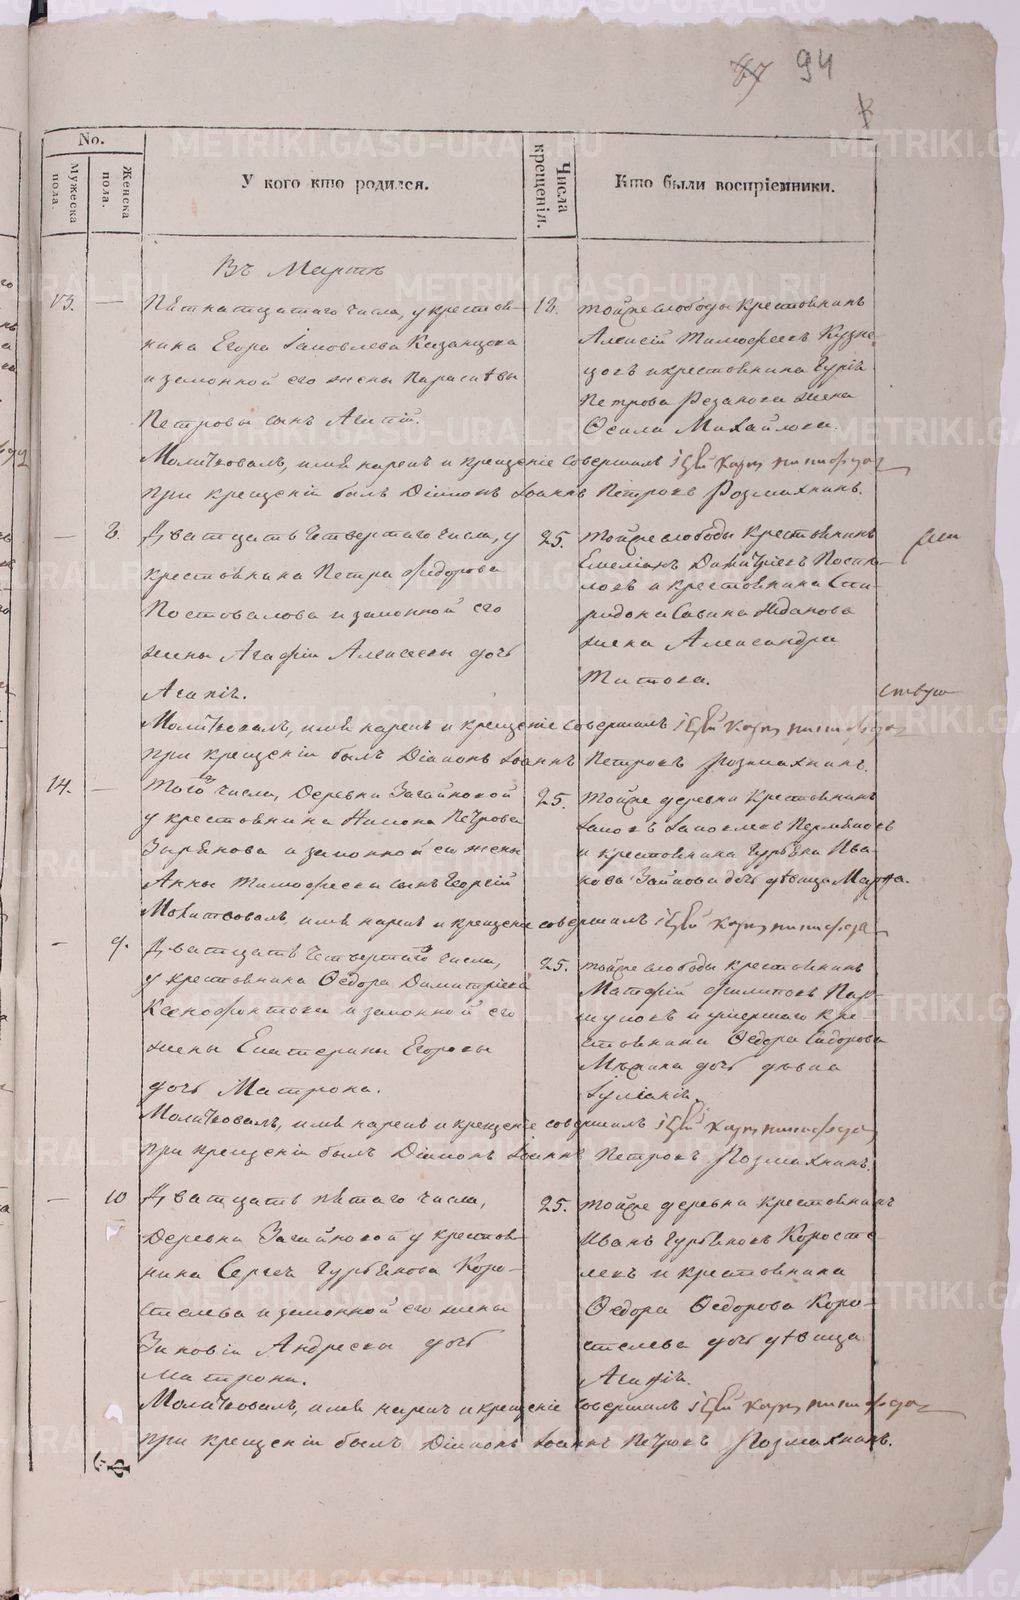 94
No.
Мужеска пола.
Женска пола.
У кого кто родился.
Числа крещенія.
Кто были воспріемники.
Въ Мартѣ
13. — Пятнатцатаго числа, у крестья-
нина Егора Іаковлева Казанцова
и законной его жены Параскѣвы
Петровы сынъ Агапій.
18. тойже слободы крестьянинъ
Алексій Тимофеевъ Кузне-
цовъ и крестьянина Гурія
Петрова Резанова жена
Ѳекла Михайлова.
Молитвовалъ, имя нарекъ и крещеніе совершилъ
при крещеніи былъ Діаконъ Іоаннъ Петровъ Розмахнинъ.
— 8. Дватцать четвертаго числа, у
крестьянина Петра Ѳидорова
Постовалова и законной его
жены Агафіи Алексеевы дочь
Агапія.
25. тойже слободы крестьянинъ
Емеліанъ Димитріевъ Посто-
ловъ и крестьянина Спи-
ридона Савина Жданова
жена Александра
Титова.
Молитвовалъ, имя нарекъ и крещеніе совершилъ
при крещеніи былъ Діаконъ Іоаннъ Петровъ Розмахнинъ.
14. — Того числа, деревни Загайновой
у крестьянина Никона Петрова
Зырянова и законной его жены
Анны Тимофеевы сынъ Георгій
25. тойже деревни крестьянинъ
Іаковъ Іаковлевъ Пермяковъ
и крестьянина Гурьяна Ива-
нова Зайкова дочь дѣвица Марѳа.
Молитвовалъ, имя нарекъ и крещеніе совершилъ
— 9. Дватцать четвертаго числа,
у крестьянина Ѳеодора Димитріева
Ксенофонтова и законной его
жены Екатерины Егоровы
дочь Матрона.
25. тойже слободы крестьянинъ
Матфій Филиповъ Пар-
шуковъ и умершаго кре-
стьянина Ѳедора Сидорова
дочь дѣвка
Іуліанія.
Молитвовалъ, имя нарекъ и крещеніе совершилъ
при крещеніи былъ Діаконъ Іоаннъ Петровъ Розмахнинъ.
— 10 Дватцать пятаго числа,
деревни Загайновой у крестья-
нина Сергея Гурьянова Коро-
стелева и законной его жены
Зиновіи Андреевы дочь
Матрона.
25. тойже деревни крестьянинъ
Иванъ Гурьяновъ Коросте-
левъ и крестьянина
Ѳедора Ѳедорова Коро-
стелева дочь дѣвица
Агафія.
Молитвовалъ, имя нарекъ и крещеніе совершилъ
при крещеніи былъ Діаконъ Іоаннъ Петровъ Розмахнинъ.
METRIKI.GASO-URAL.RU